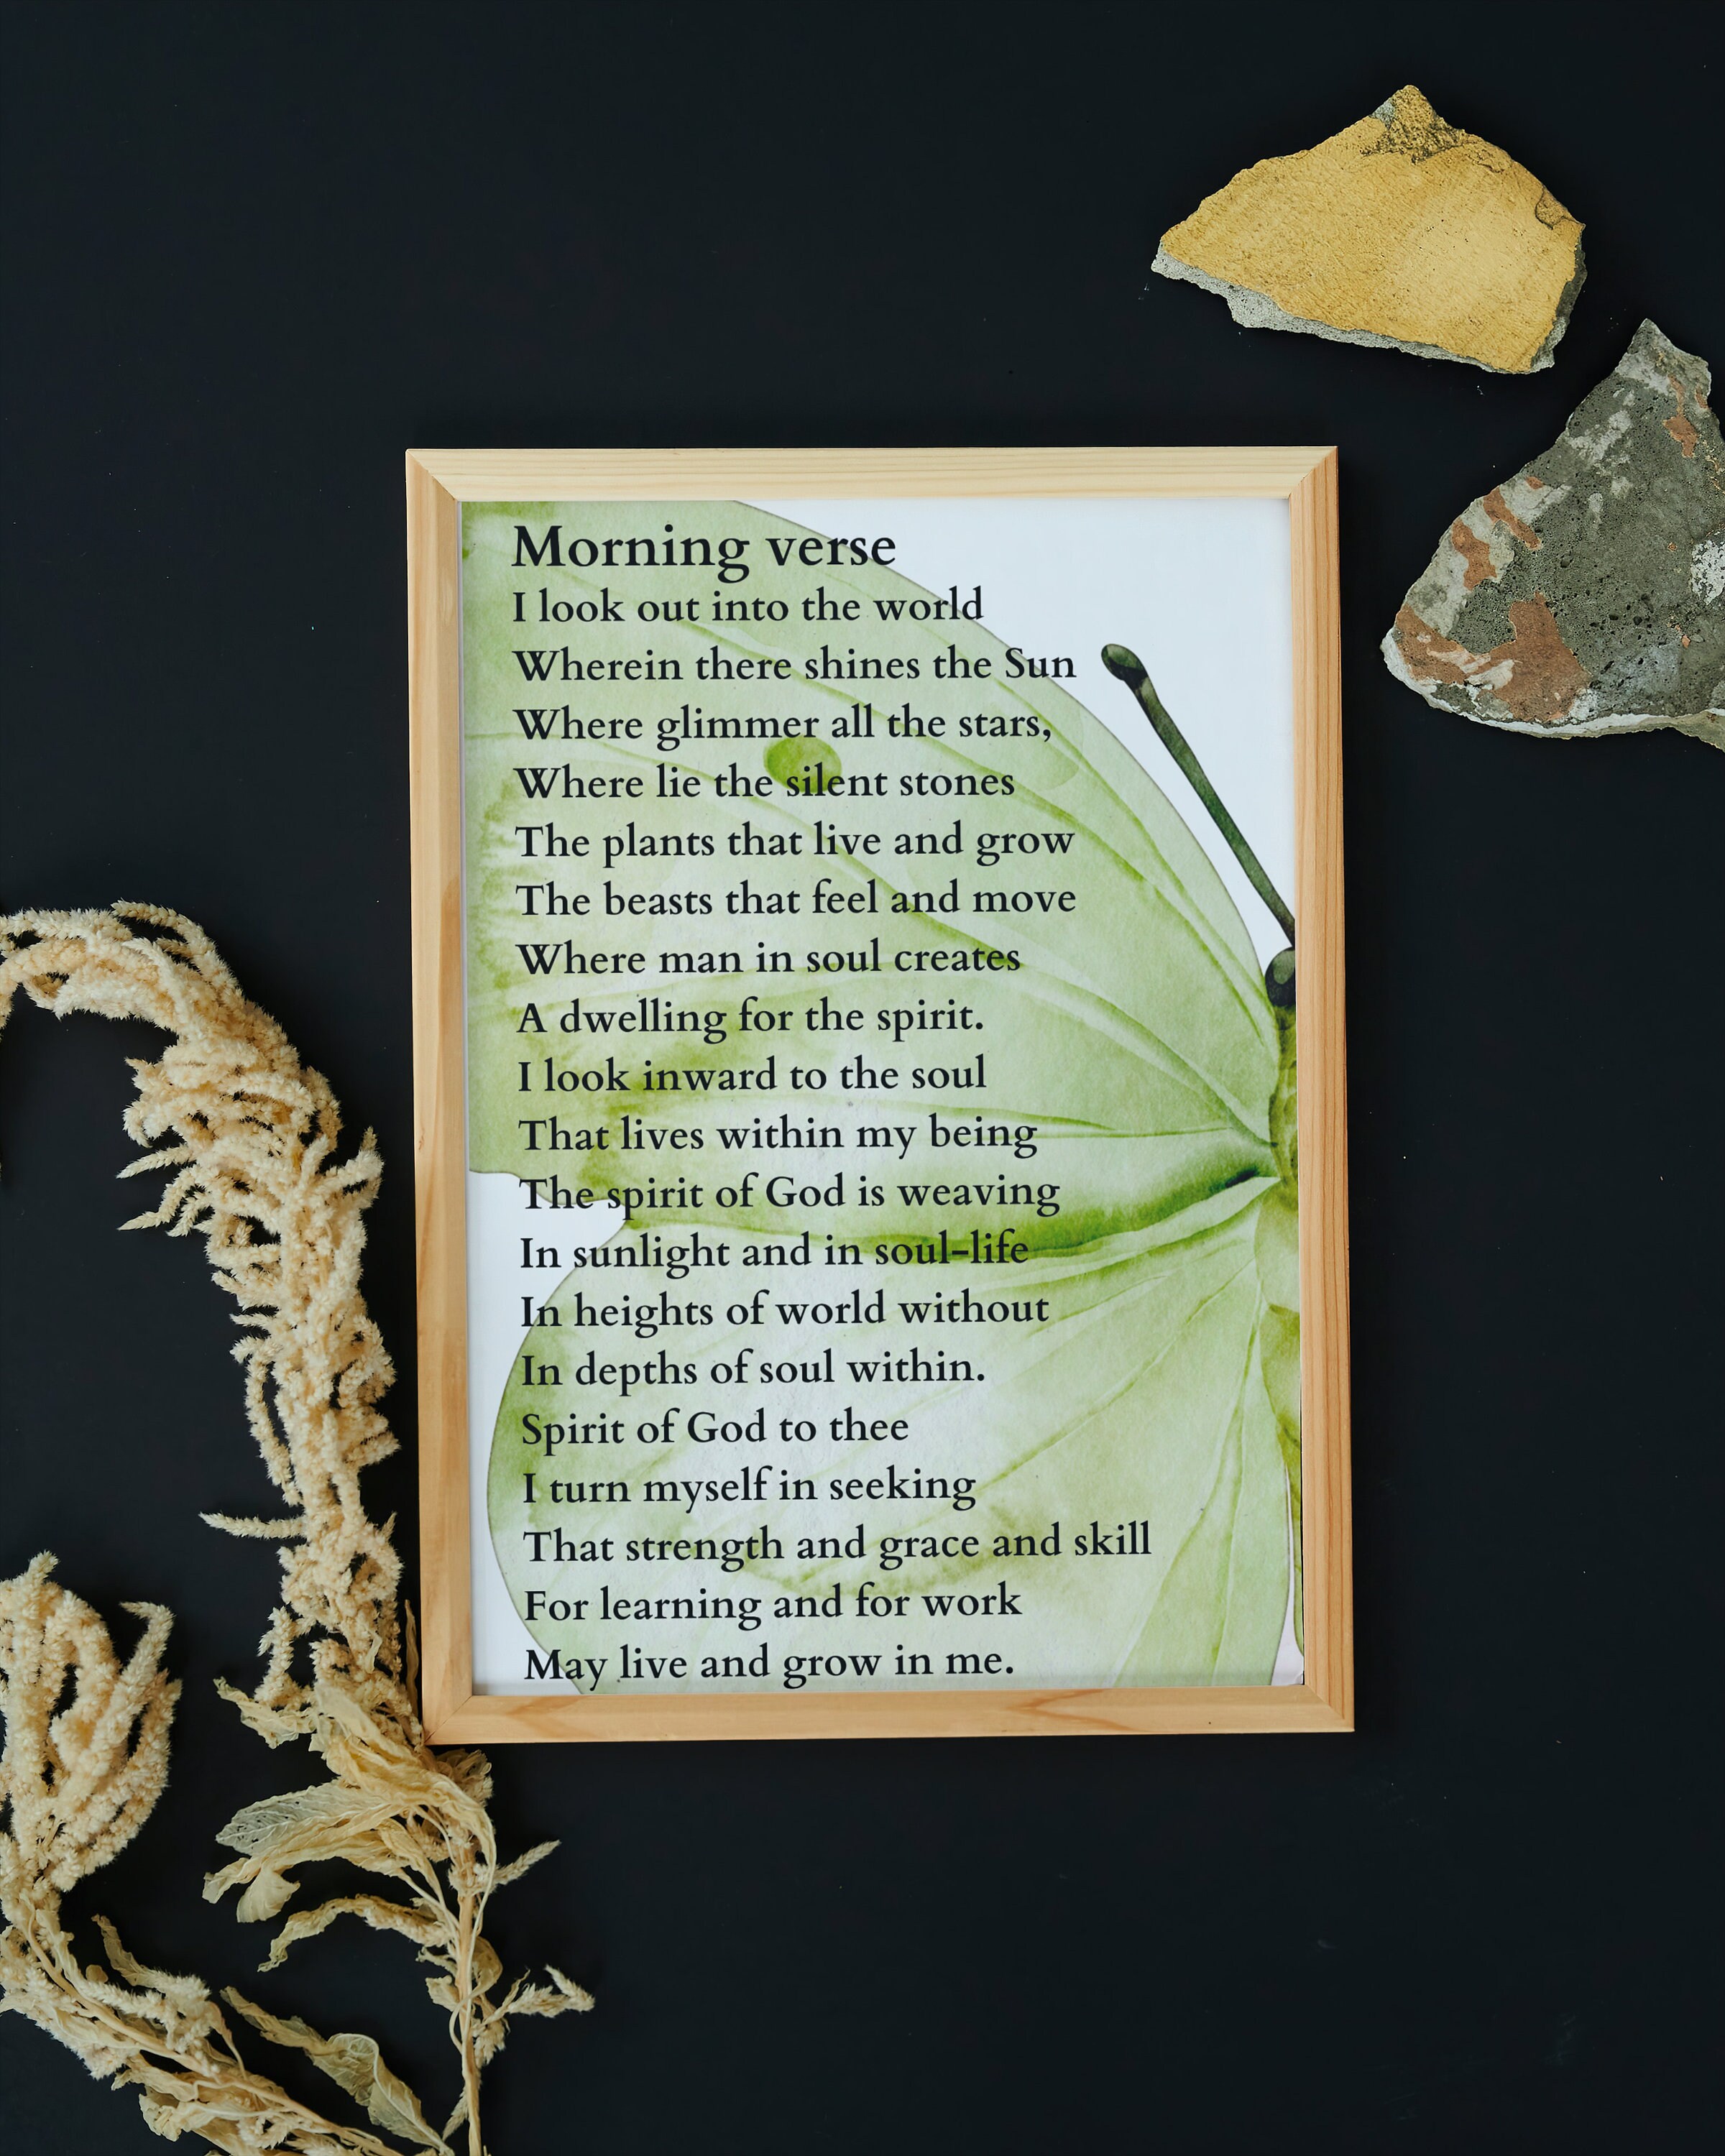 Morning verse
I look out into the world
Wherein there shines the Sun
Where glimmer all the stars,
Where lie the silent stones
The plants that live and grow
The beasts that feel and move
Where man in soul creates
A dwelling for the spirit.
I look inward to the soul
That lives within my being
The spirit of God is weaving
In sunlight and in soul-life
In heights of world without
In depths of soul within.
Spirit of God to thee
I turn myself in seeking
That strength and grace and skill
For learning and for work
May live and grow in me.